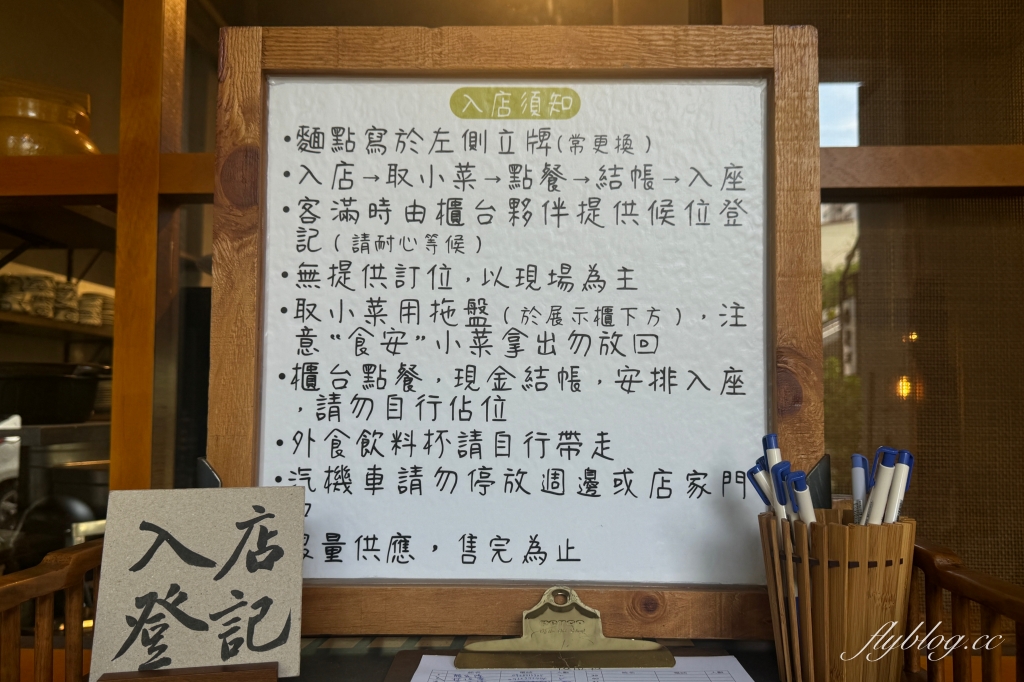 入店須知
•麵點寫於左側立牌(常更換)
•入店→取小菜→點餐→結帳→入座
•客滿時由櫃台夥伴提供候位登
記(請耐心等候)
•無提供訂位,以現場為主
•取小菜用拖盤(於展示櫃下方),注
意“食安”小菜拿出勿放回
•櫃台點餐,現金結帳,安排入座
,請勿自行佔位
•外食飲料杯請自行帶走
•汽機車請勿停放週邊或店家門
量供應,售完為止
入店
登記
flyblog.cc